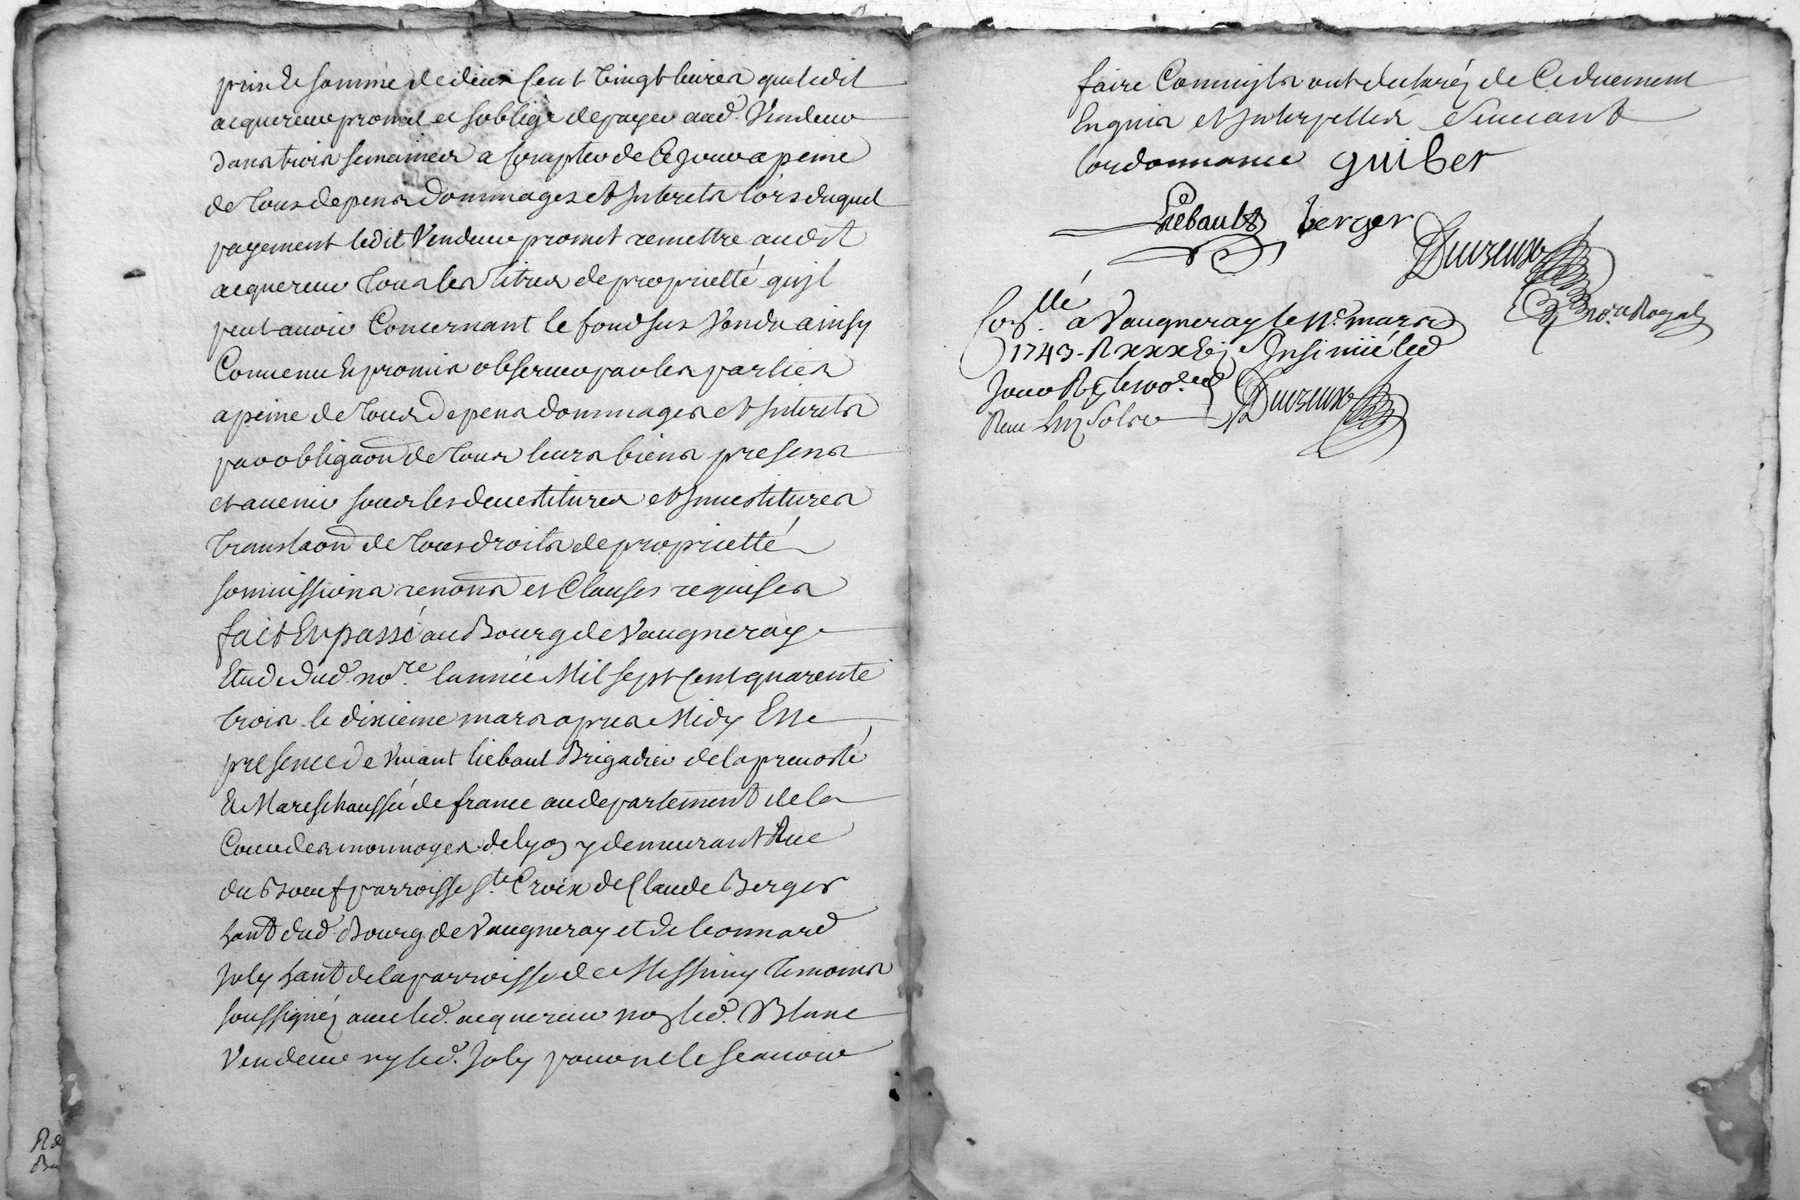 prix et somme de deux cent vingt livres que ledit
acquereur promet et soblige de payer aud. Vendeur
dans trois semaines a compter de ce jour a peine
de tous depens dommages et Interets lors duquel
payement ledit Vendeur promet remettre audit
acquereur tous les titres de proprietté quyl
peut avoir Concernant le fond sus Vendu ainsy
Convenu et promis observer par les parties
a peine de tous depens dommages et Interets
par obligaon de tous leurs biens presens
et avenir sous les devestitures et Investitures
translaon de tous droits de proprietté
soumissions renons et Clauses requises
fait et passé au Bourg de Vaugneray
Etude dud. nore. lannée Mil sept cent quarente
trois le dixieme mars apres Midy En
presence de Vivant liebaut Brigadier de la prevosté
et Mareschaussée de france au departement de la
Cour des monnoyes de lyon y demeurant Rue
du Boeuf parroisse Ste. Croix de Claude Berger
hant dud. Bourg de Vaugneray et de leonnard
Joly hant de la parroisse de Messimy temoins
soussignéz avec led. acquereur non led. Blanc
Vendeur ny led. Joly pour ne le scavoir
faire Comm'ils ont declaréz de Ce duement
Enquis et Interpellés Suivant
lordonnance guiber
Liebault berger
Duvreux
no.re Royal
Con.llé a Vaugneray le 11e. mars
1743. R Insinué led
Jour R
Duvreux